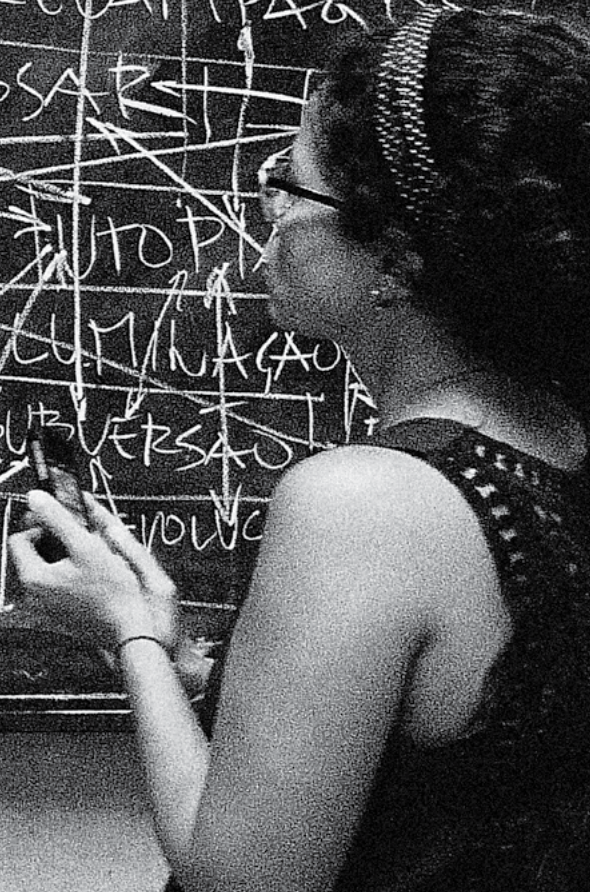 OSAR
UTOPI
LUMINAÇÃO
UBVERSÃO
EVOLUÇ